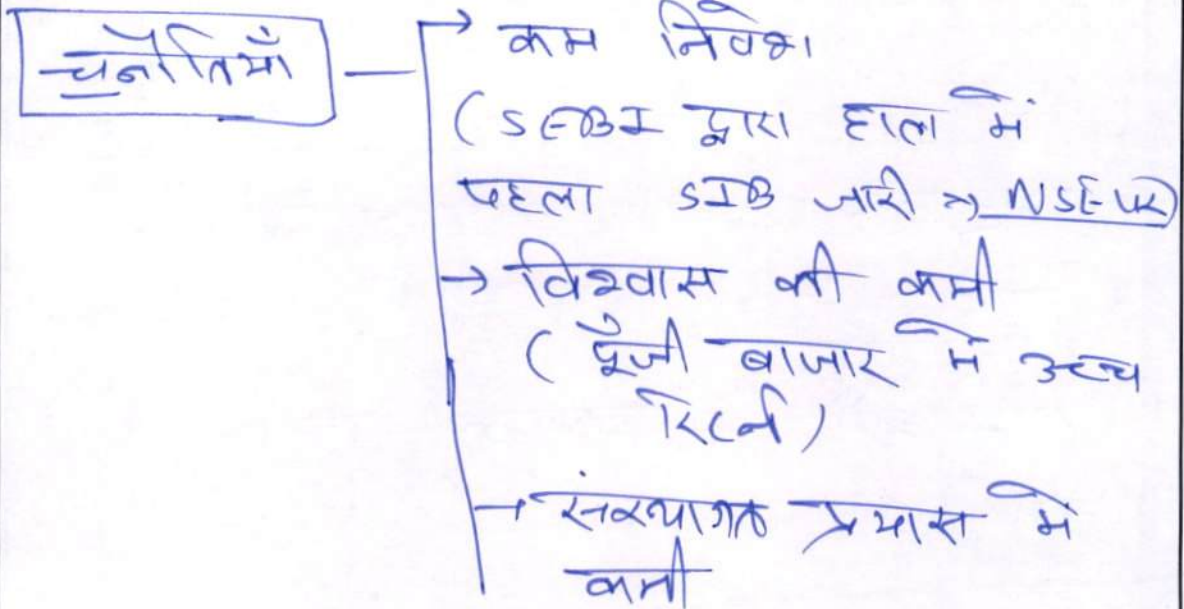 चुनौतियाँ
→ कम निवेश
(SEBI द्वारा हाल में
पहला SIB जारी → NSE पर)
→ विश्वास की कमी
(पूँजी बाजार में उच्च
रिटर्न)
→ संस्थागत प्रयास में
कमी